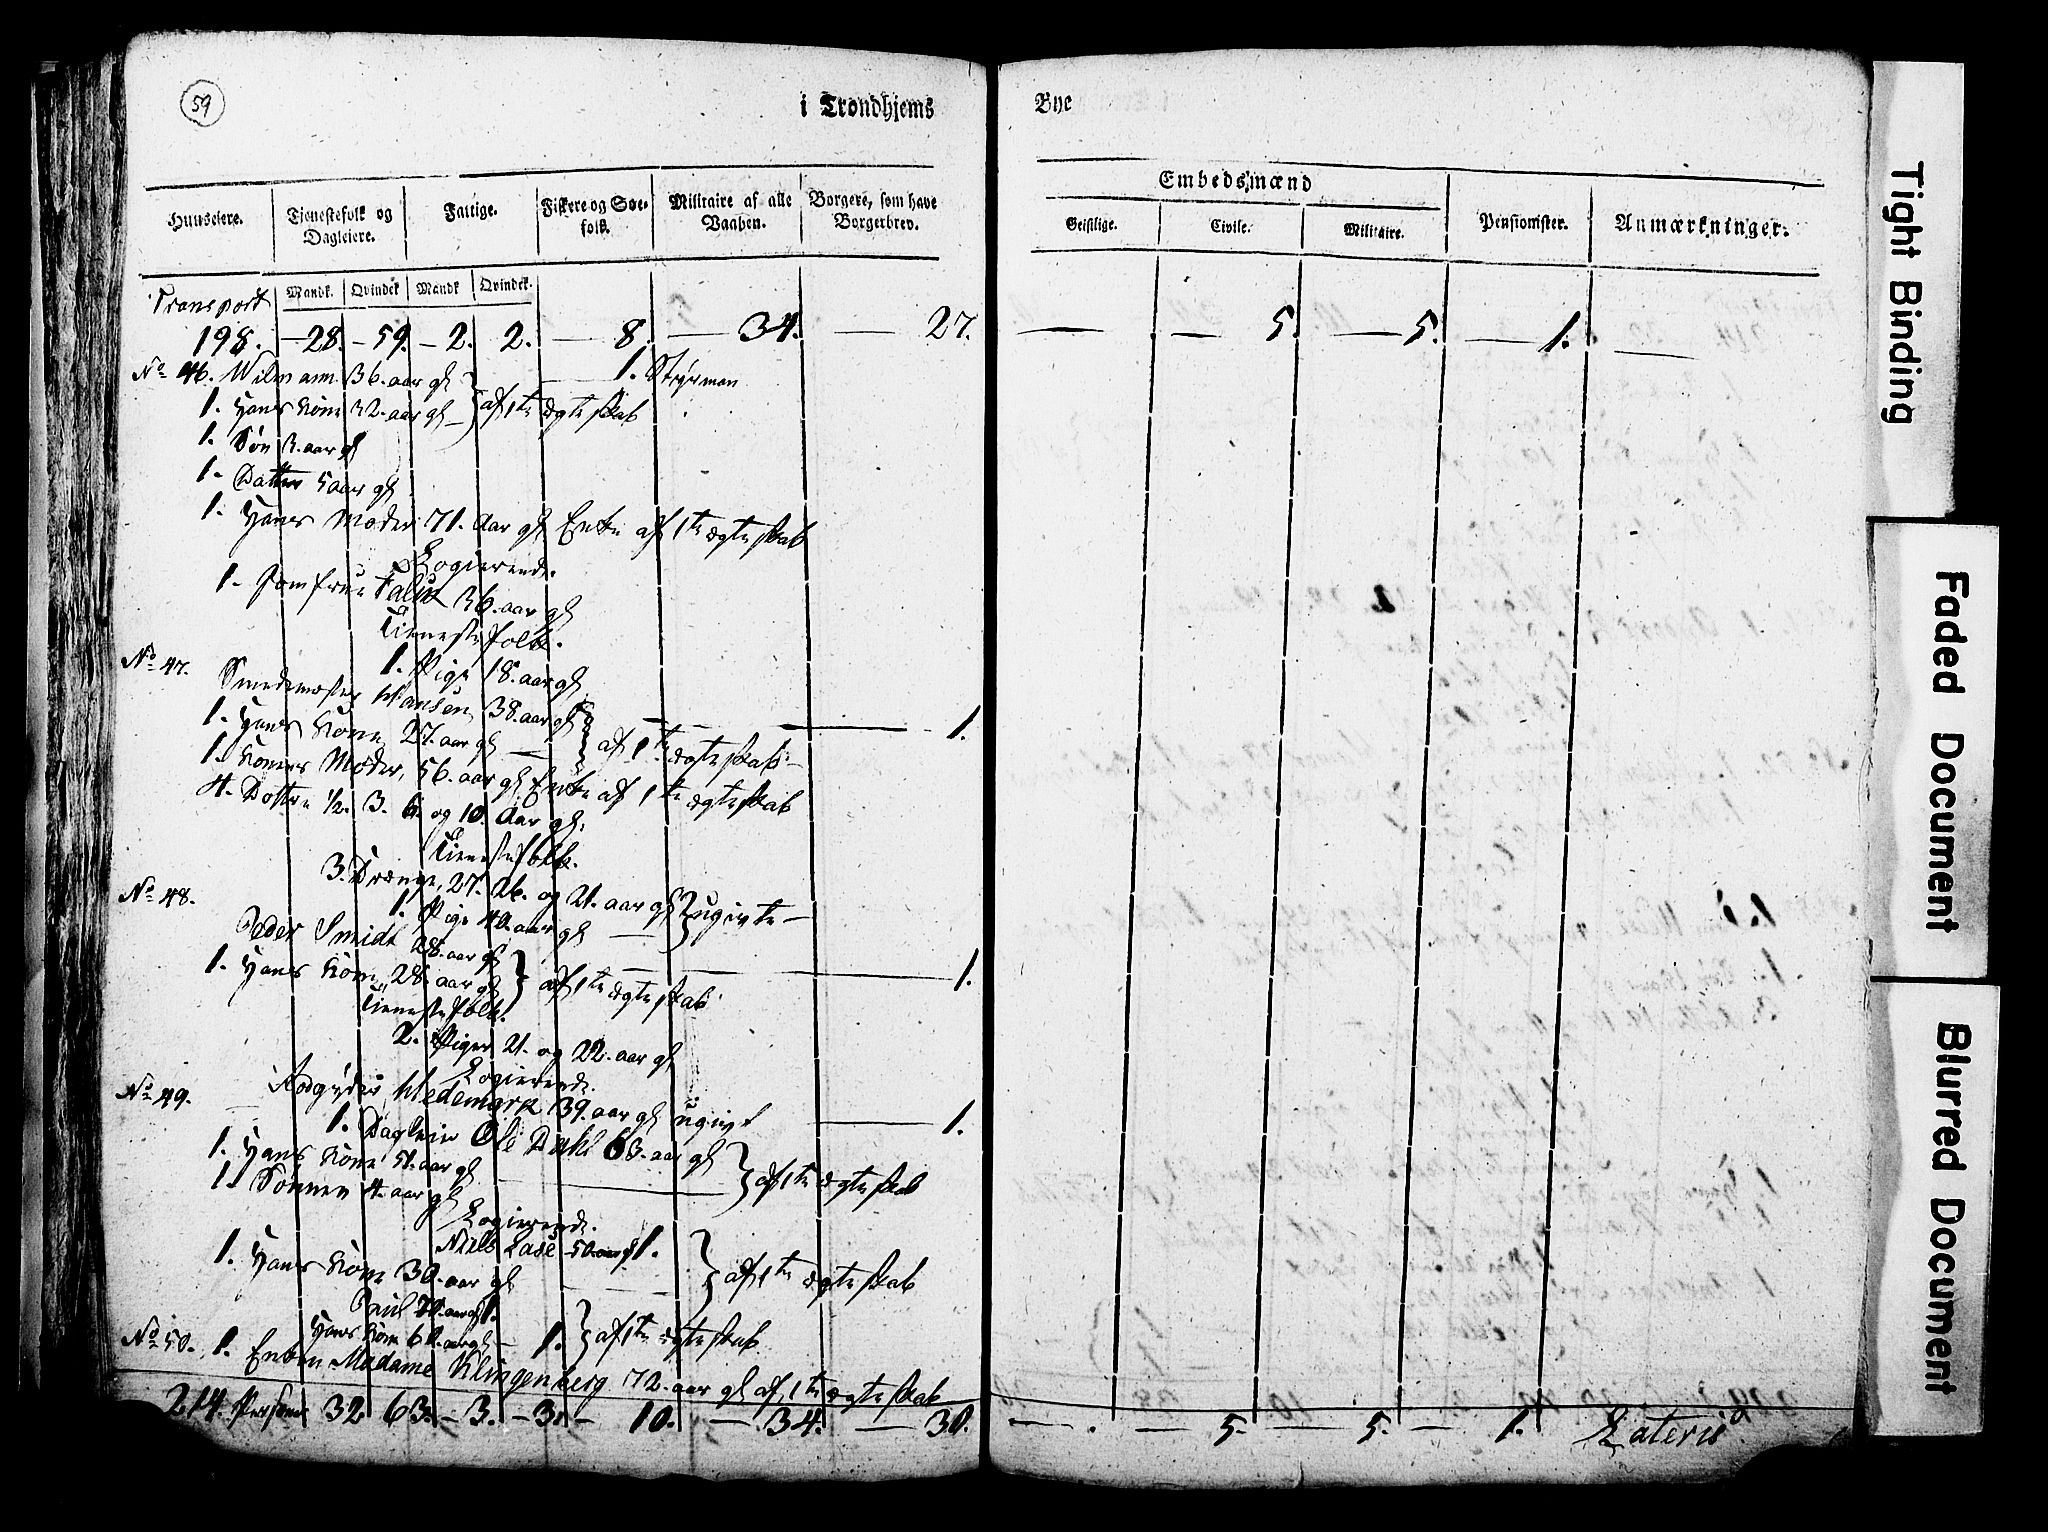 59
i Trondhjems Bye
Huuseiere. Tjenestefolk og Dagleiere. Fattige. Fiskere og Søe-folk. Militaire af alle Vaaben. Borgere, som have Borgerbrev. Embedsmænd Pensionister. Anmærkninger.
Geistlige. Civile. Militaire.
Mandk. Qvindek Mandk Qvindek.
Transport
198. — 28. — 59. — 2. 2. — 8. — 34. — 27. — 5. — 5. — 1. —
No 46. Wilmann 36. aar gl — 1. Styrman
1. Hans Kone 32. aar gl — } af 1te ægteskab
1. Søn 3. aar gl
1. Datter 5 aar gl
1. Hans Moder 71. Aar gl Enke af 1te ægteskab
Logierende.
1. Jomfrue 36. aar gl
Tieneste folk.
1. Pige 18. aar gl
No 47.
Smedemester Hansen 38. aar gl — 1.
1. Hans Kone 27. aar gl — } af 1te ægteskab —
1. Konens Moder, 56. aar gl Enke af 1te ægteskab
4. Døttre 1/2. 3. 6. og 10. Aar gl.
Tieneste folk.
3. Drenge, 27. 26. og 21. aar gl } ugivte —
1. Pige 40. aar gl —
No 48.
Peder Smidt 28. aar gl — 1.
1. Hans Kone 28. aar gl } af 1te ægteskab
Tieneste folk.
2. Piger 21. og 22. aar gl
Logierende.
Hedemark 39. aar gl ugivt — 1.
No 49.
1. Dagleier Ole Dahl 63. aar gl
1. Hans Kone 51. aar gl — } af 1te ægteskab
1. Sønnen 4. aar gl
Logierende.
Niels 50. aar gl 1.
1. Hans Kone 30. aar gl } af 1te ægteskab
Paul 70. aar gl 1.
Hans Kone 60. aar gl — 1. } af 1te ægteskab
No 50. 1. Enken Madame Klingenberg 72. aar gl af 1te ægteskab
214. Personer 32 63. — 3. — 3. — 10. — 34. — 30. — . — 5. — 5. — 1. Lateris
Tight Binding
Faded Document
Blurred Document